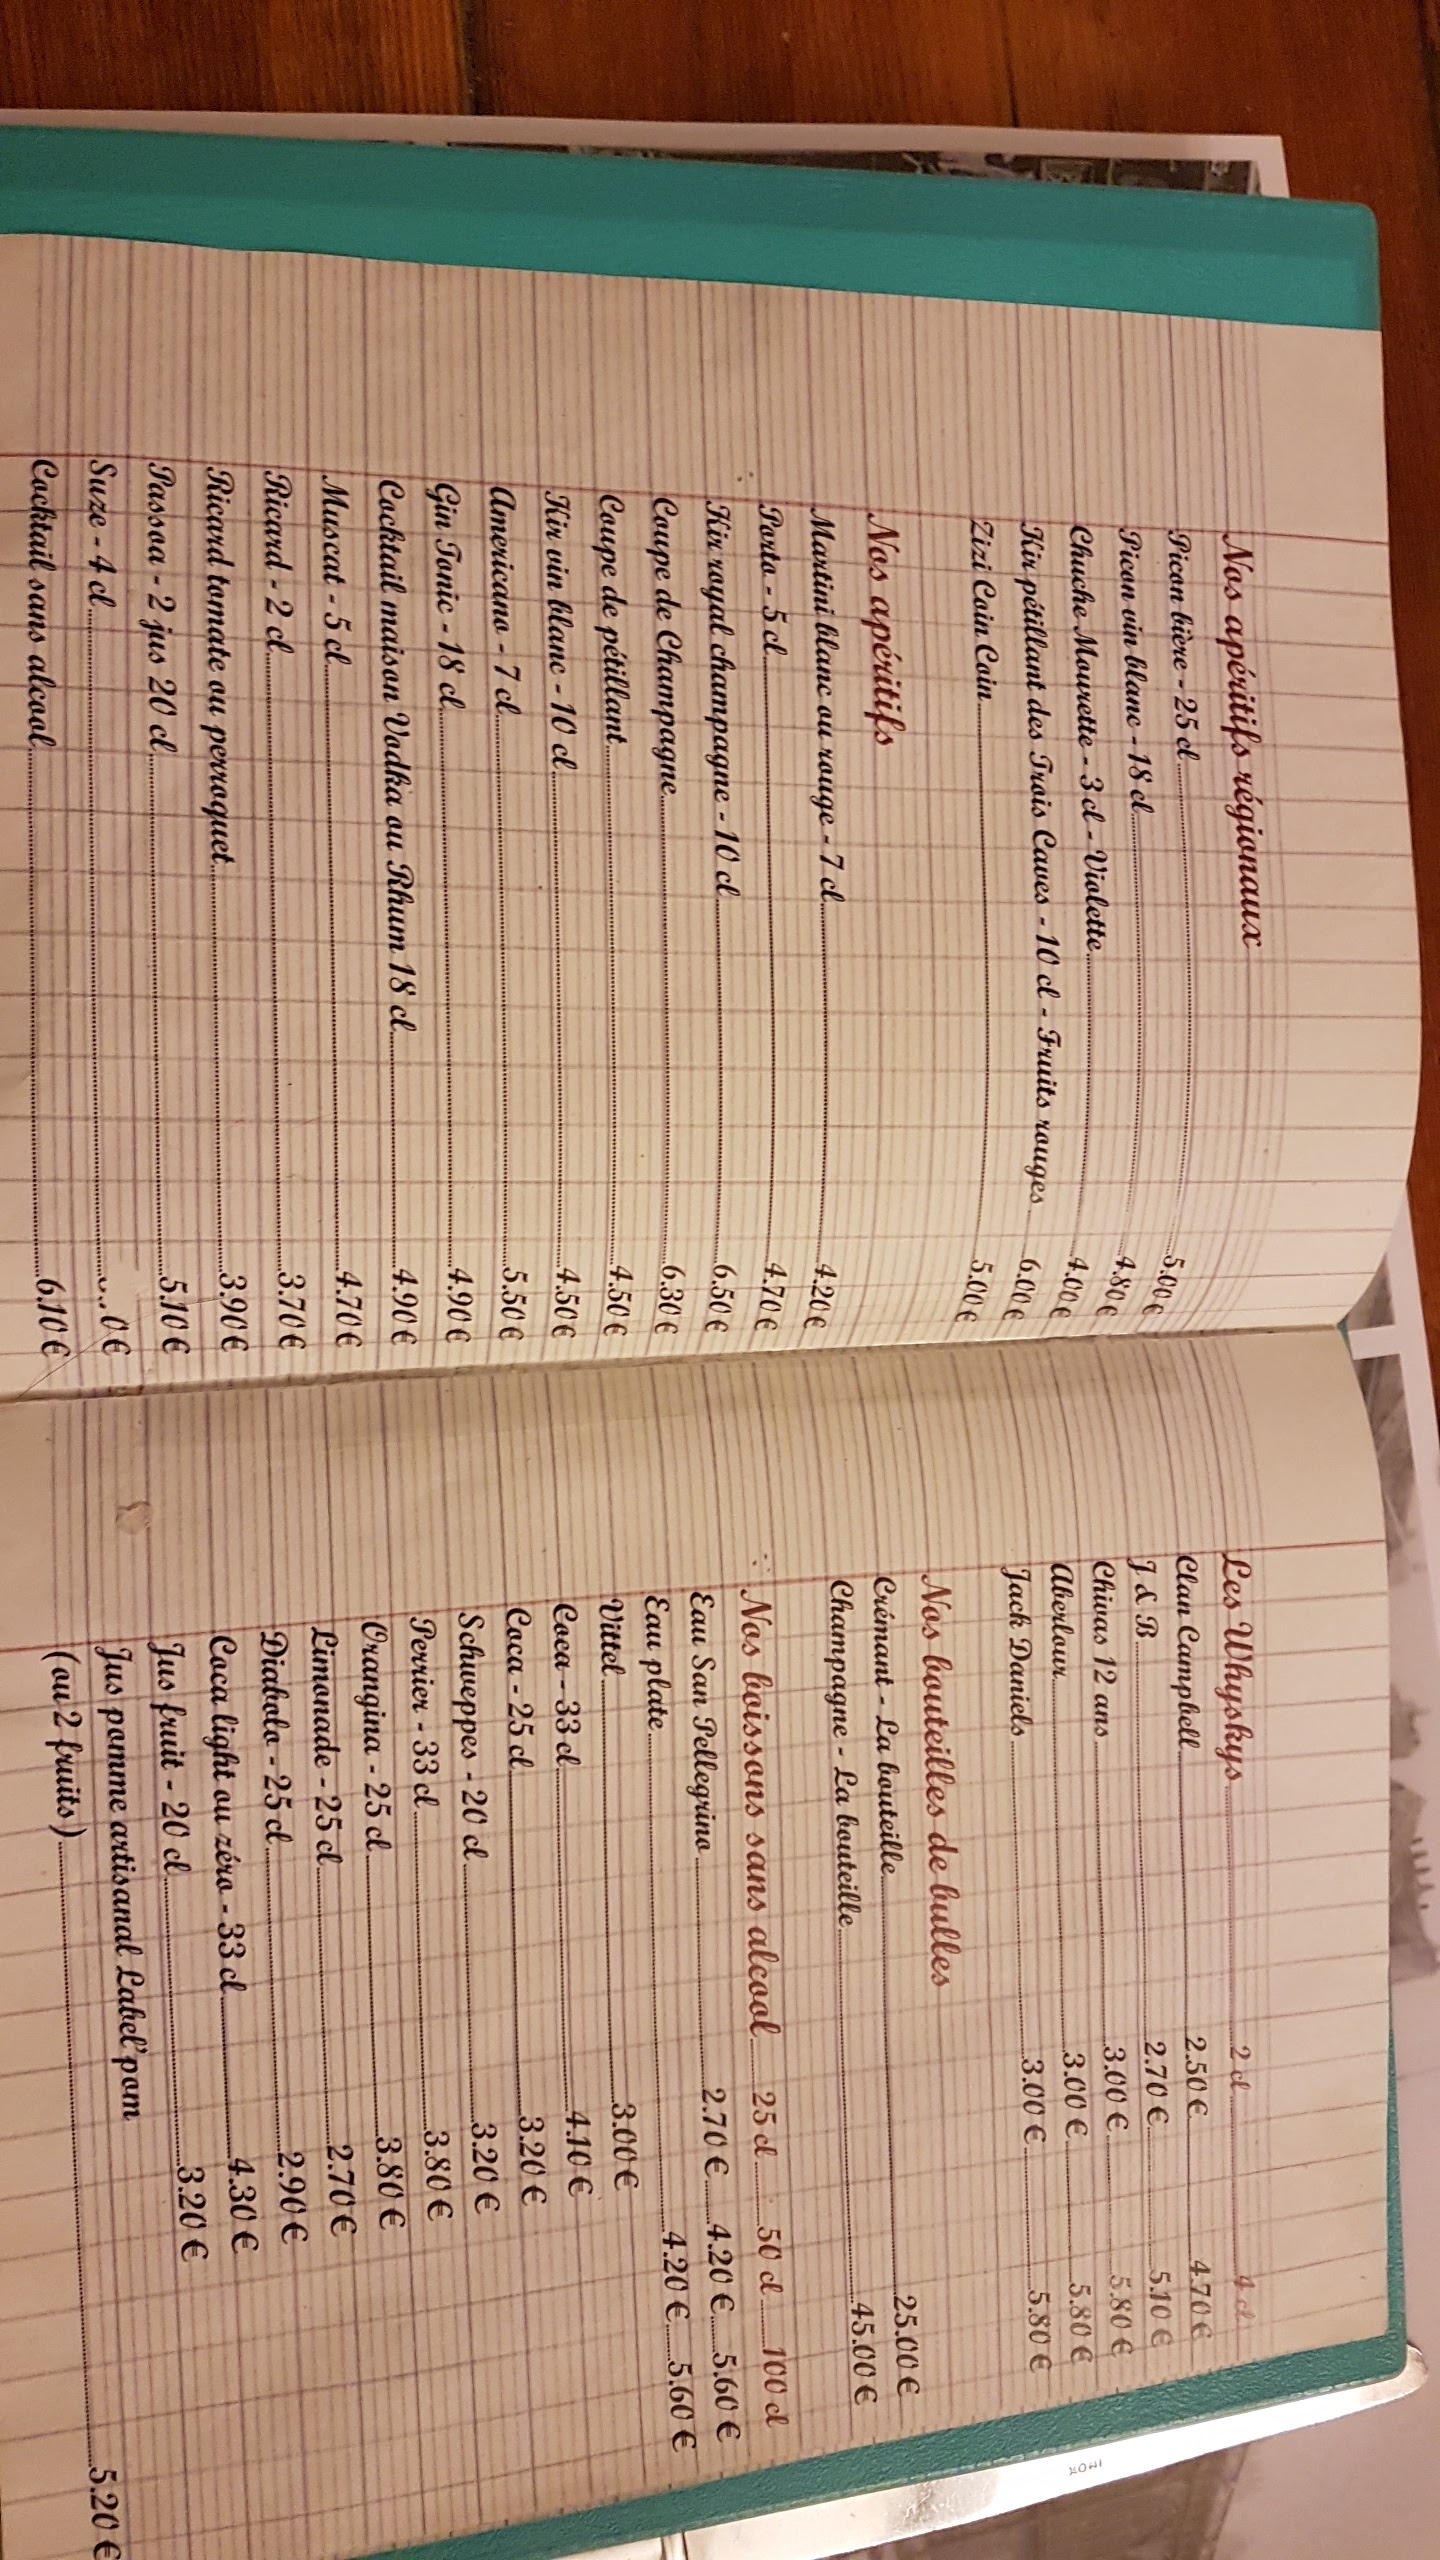 Nos apéritifs régionaux
Picon bière - 25 cl 5.00 €
Picon vin blanc - 18 cl 4.80 €
Chuche Mourette - 3 cl - Violette 4.00 €
Kir pétillant des Trois Caves - 10 cl - Fruits rouges 6.00 €
Zizi Coin Coin 5.00 €
Nos apéritifs
Martini blanc ou rouge - 7 cl 4.20 €
Porto - 5 cl 4.70 €
Kir royal champagne - 10 cl 6.50 €
Coupe de Champagne 6.30 €
Coupe de pétillant 4.50 €
Kir vin blanc - 10 cl 4.50 €
Americano - 7 cl 5.50 €
Gin Tonic - 18 cl 4.90 €
Cocktail maison Vodka ou Rhum 18 cl 4.90 €
Muscat - 5 cl 4.70 €
Ricard - 2 cl 3.70 €
Ricard tomate ou perroquet 3.90 €
Passoa - 2 jus 20 cl 5.10 €
Suze - 4 cl 0 €
Cocktail sans alcool 6.10 €
Les Whyskys 2 cl 4 cl
Clan Campbell 2.50 € 4.70 €
J & B 2.70 € 5.10 €
Chivas 12 ans 3.00 € 5.80 €
Aberlour 3.00 € 5.80 €
Jack Daniels 3.00 € 5.80 €
Nos bouteilles de bulles
Crémant - La bouteille 25.00 €
Champagne - La bouteille 45.00 €
Nos boissons sans alcool 25 cl 50 cl 100 cl
Eau San Pellegrino 2.70 € 4.20 € 5.60 €
Eau plate 4.20 € 5.60 €
Vittel 3.00 €
Coca - 33 cl 4.10 €
Coca - 25 cl 3.20 €
Schweppes - 20 cl 3.20 €
Perrier - 33 cl 3.80 €
Orangina - 25 cl 3.80 €
Limonade - 25 cl 2.70 €
Diabolo - 25 cl 2.90 €
Coca light ou zéro - 33 cl 4.30 €
Jus fruit - 20 cl 3.20 €
Jus pomme artisanal Label'pom
(ou 2 fruits) 5.20 €